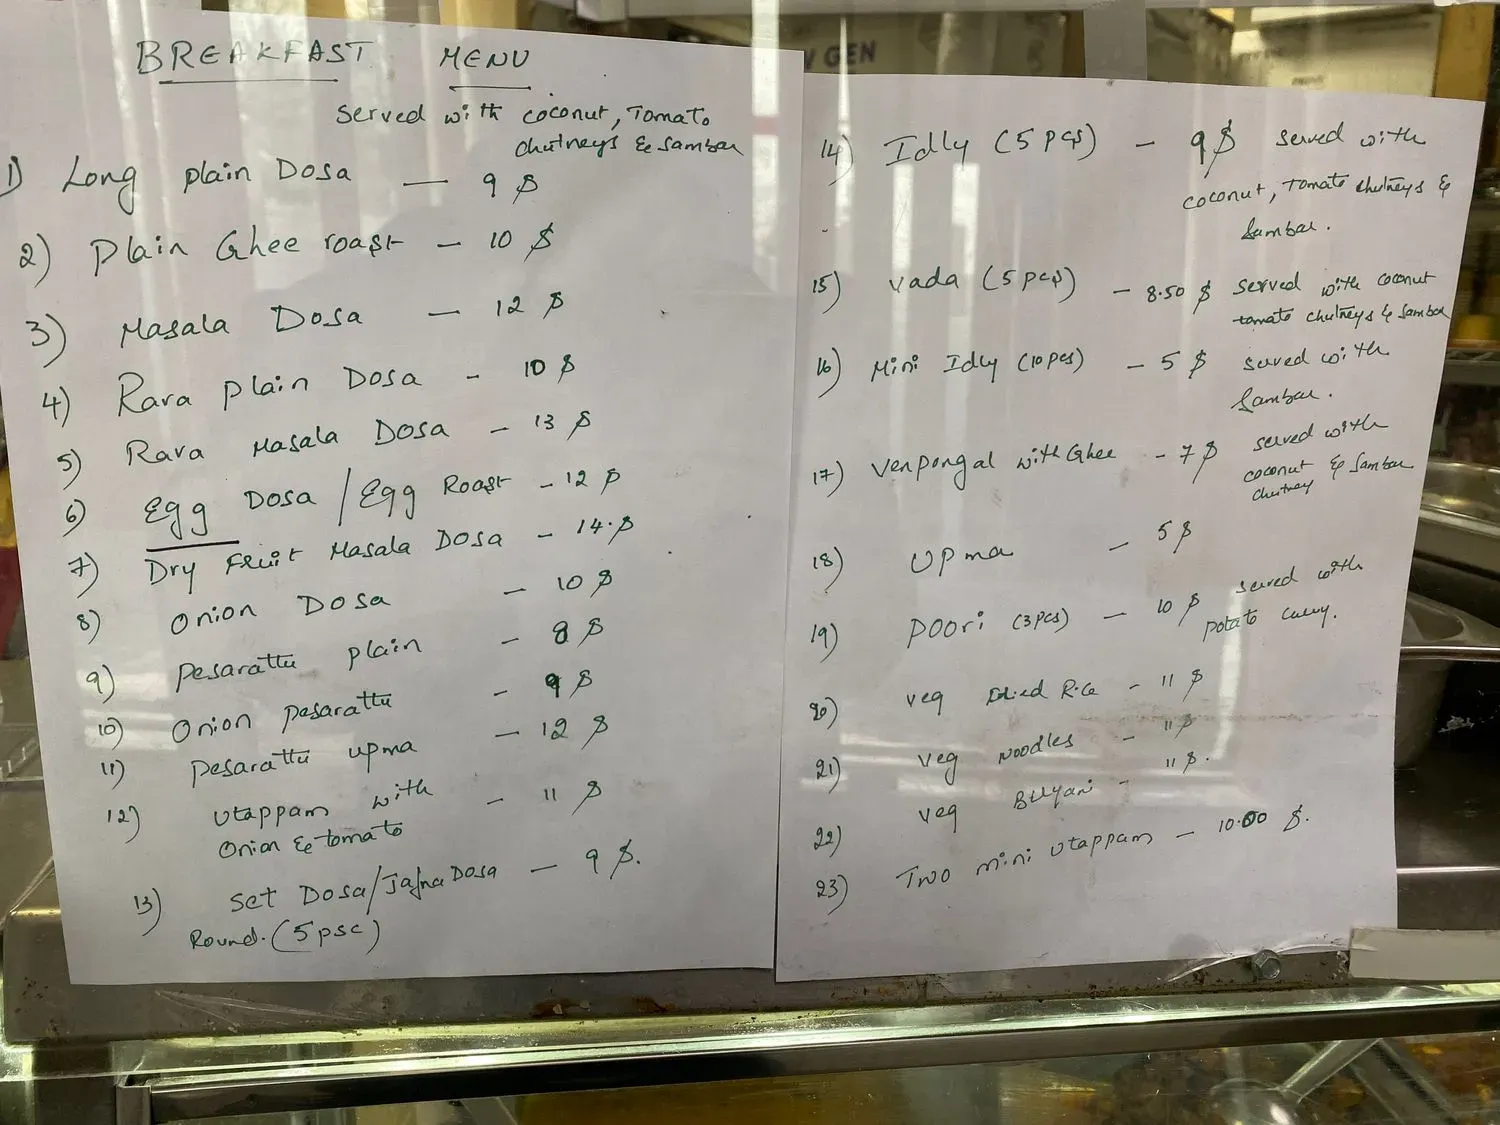 BREAKFAST MENU
Served with coconut, Tomato
chutneys & Sambar
1) Long plain Dosa — 9 $
2) Plain Ghee roast — 10 $
3) Masala Dosa — 12 $
4) Rava plain Dosa - 10 $
5) Rava Masala Dosa - 13 $
6) Egg Dosa / Egg Roast - 12 $
7) Dry Fruit Masala Dosa - 14.$
8) Onion Dosa - 10 $
9) Pesarattu plain - 8 $
10) Onion pesarattu - 9 $
11) Pesarattu upma - 12 $
12) Utappam with - 11 $
Onion & tomato
13) Set Dosa/Jafna Dosa — 9 $.
Round. (5 psc)
V GEN
14) Idly (5 pcs) - 9 $ served with
coconut, Tomato chutneys &
Sambar.
15) Vada (5 pcs) - 8.50 $ served with coconut
tomato chutneys & Sambar
16) Mini Idly (10 pcs) - 5 $ served with
Sambar.
17) Venpongal with Ghee - 7 $ served with
coconut & Sambar
chutney
18) Upma - 5 $
19) Poori (3 pcs) - 10 $ served with
potato curry.
20) Veg Rice - 11 $
21) Veg Noodles - 11 $
22) Veg - 11 $.
23) Two mini utappam - 10.00 $.